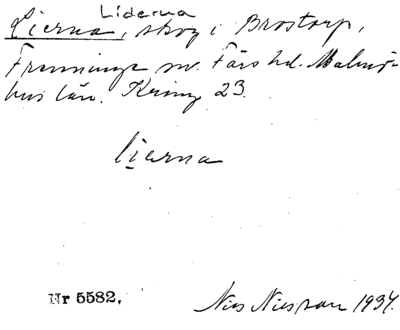 Liderna
Lierna, skog i Brostorp,
Frenninge sn. Färs hd. Malmö-
hus län. Kring 23.
lierna
Nr 5582.
Nils Nilsson 1934.